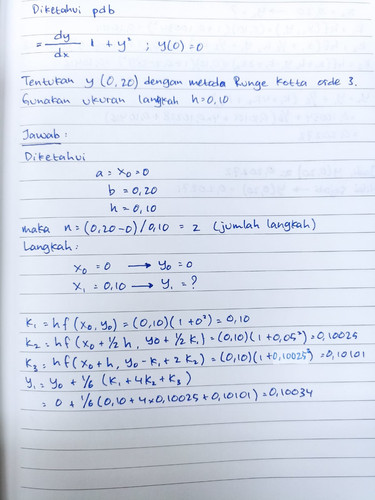 Diketahui pdb
= dy/dx 1 + y² ; y(0) = 0
Tentukan y (0,20) dengan metode Runge Kotta orde 3.
Gunakan ukuran langkah h=0,10
Jawab :
Diketahui
a = x₀ = 0
b = 0,20
h = 0,10
maka n = (0,20-0)/0,10 = 2 (jumlah langkah)
Langkah :
x₀ = 0 → y₀ = 0
x₁ = 0,10 → y₁ = ?
K₁ = hf (x₀, y₀) = (0,10)(1+0²) = 0,10
K₂ = hf (x₀ + ½ h, y₀ + ½ K₁) = (0,10)(1+0,05²) = 0,10025
K₃ = hf (x₀ + h, y₀ - K₁ + 2 K₂) = (0,10)(1+0,10025²) = 0,10101
y₁ = y₀ + ⅙ (K₁ + 4K₂ + K₃)
= 0 + ⅙ (0,10 + 4 × 0,10025 + 0,10101) = 0,10034